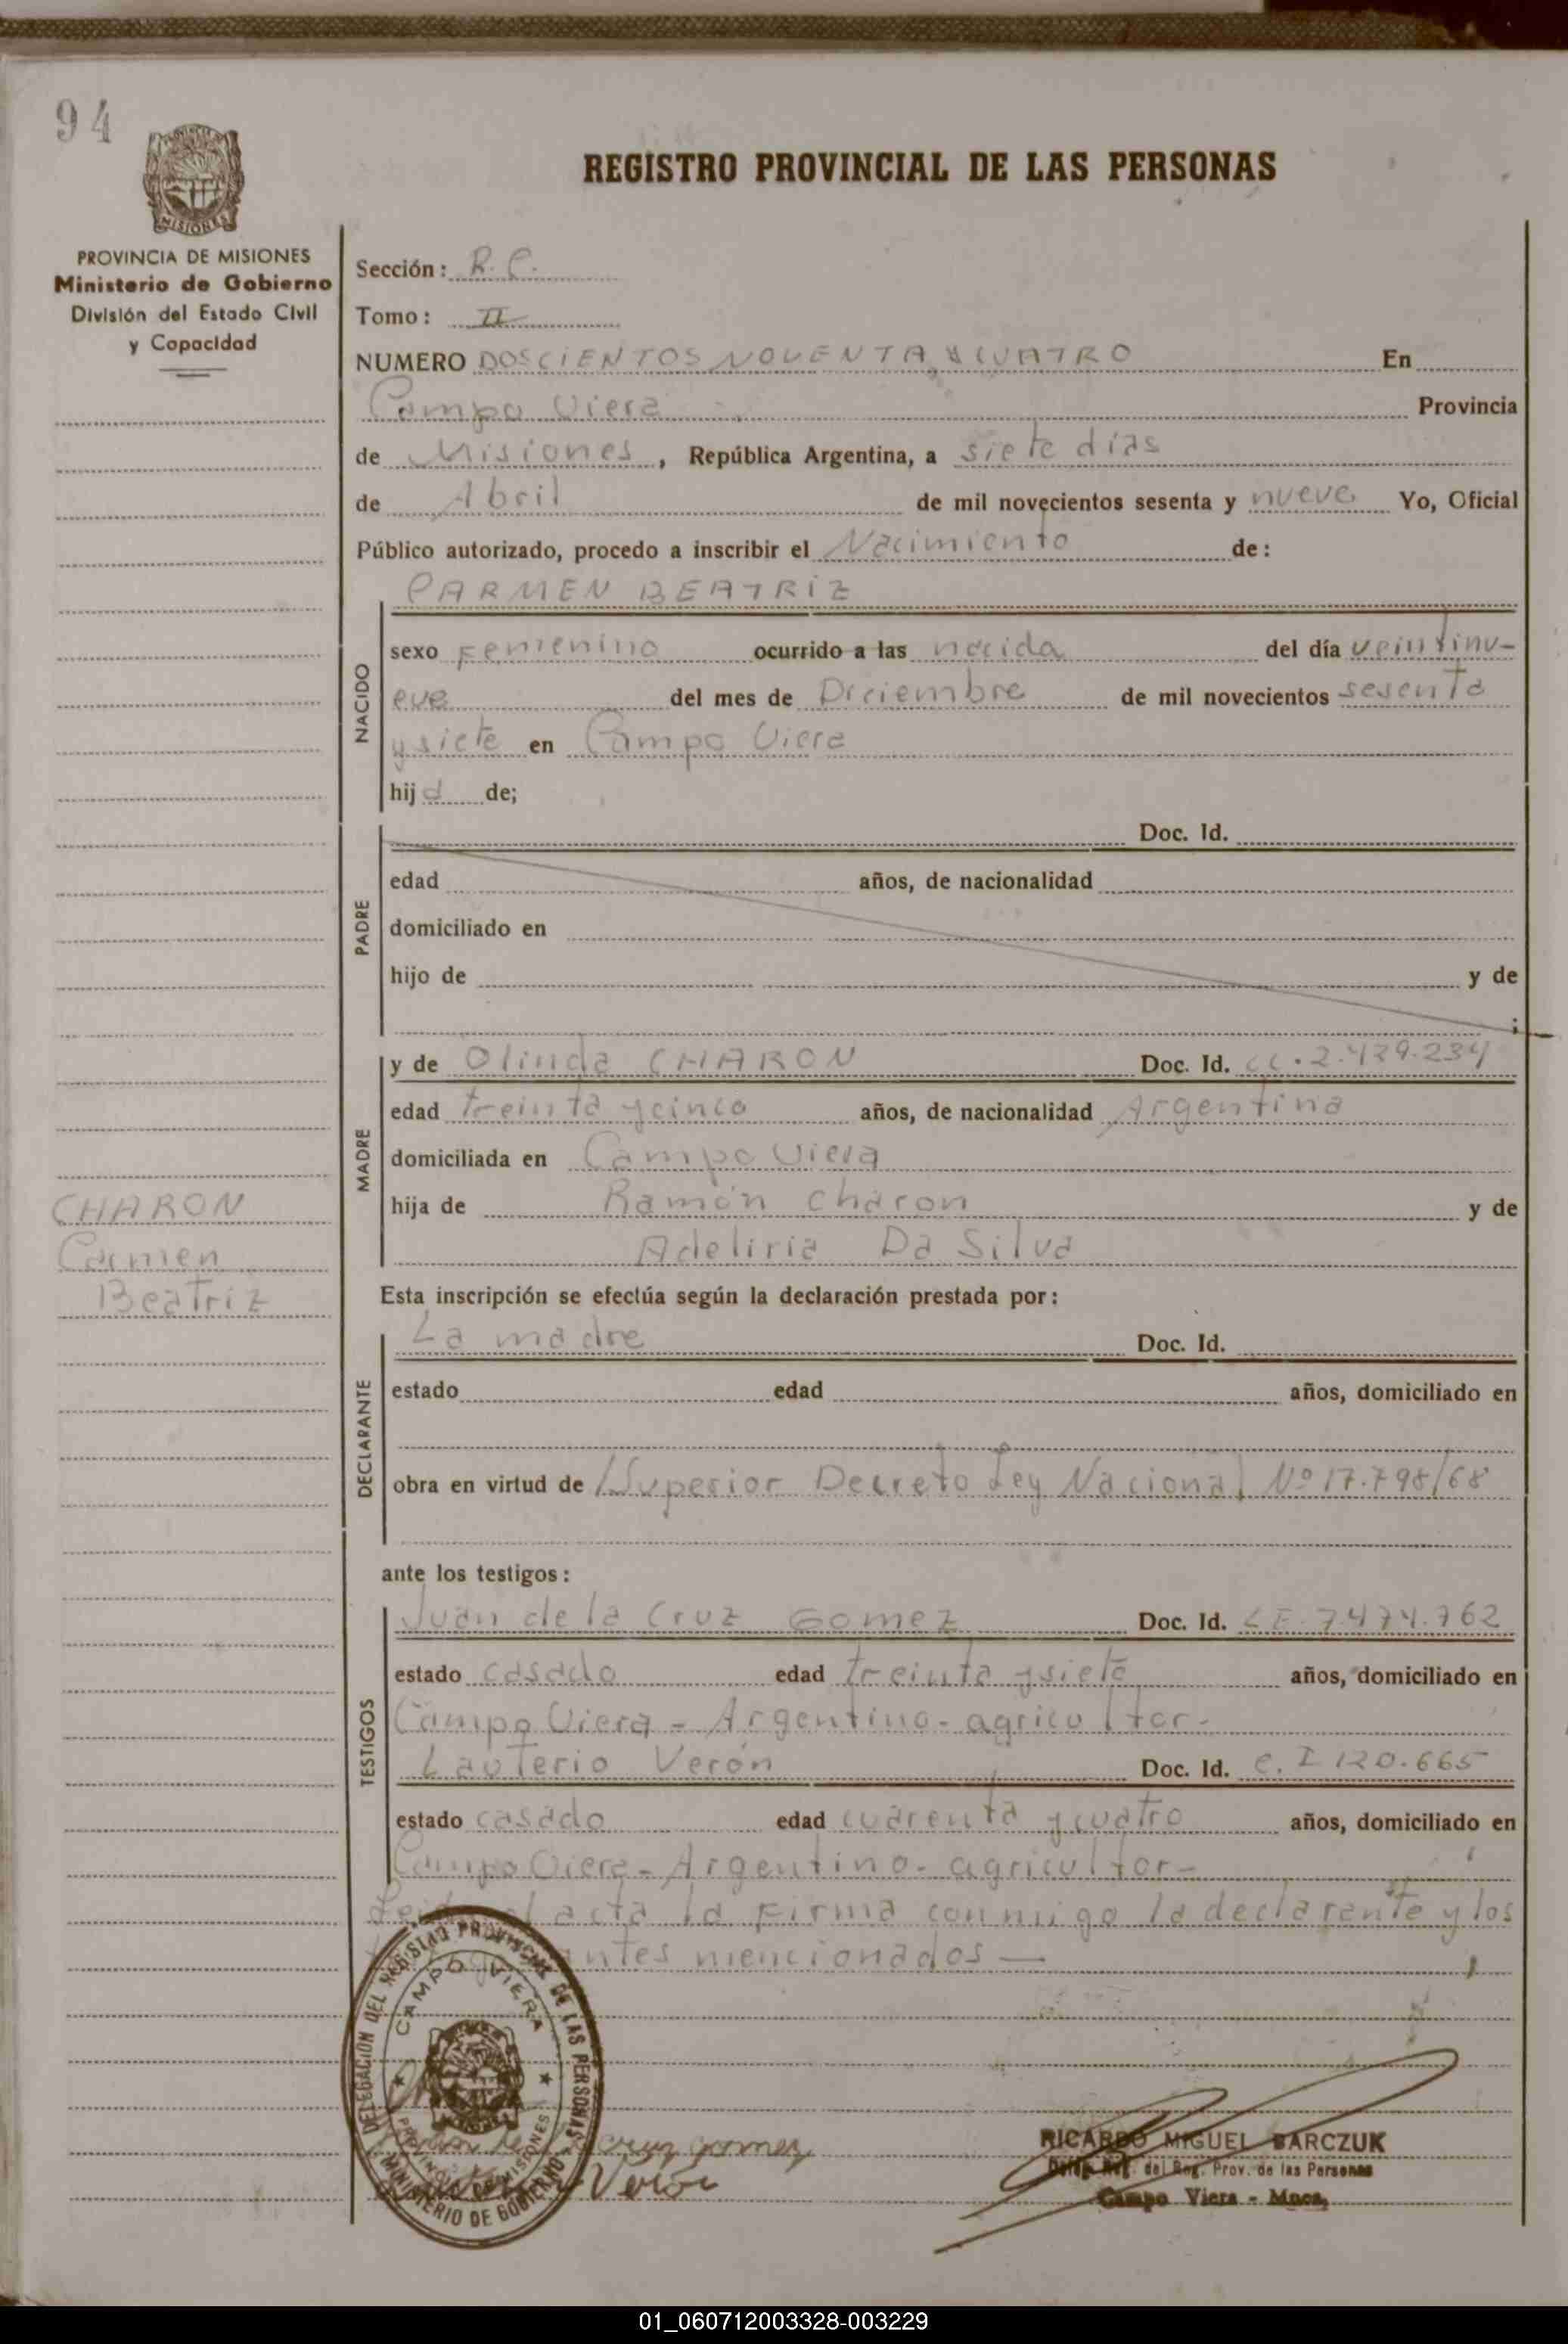 94
REGISTRO PROVINCIAL DE LAS PERSONAS
MISIONES
PROVINCIA DE MISIONES
Ministerio de Gobierno
División del Estado Civil
y Capacidad
Sección: R. C.
Tomo: II
NUMERO DOSCIENTOS NOVENTA Y CUATRO En
Campo Viera Provincia
de Misiones, República Argentina, a siete días
de Abril de mil novecientos sesenta y nueve Yo, Oficial
Público autorizado, procedo a inscribir el Nacimiento de:
CARMEN BEATRIZ
NACIDO
sexo Femenino ocurrido a las nacida del día veintinu-
eve del mes de Diciembre de mil novecientos sesenta
y siete en Campo Viera
hija de;
PADRE
Doc. Id.
edad años, de nacionalidad
domiciliado en
hijo de y de
;
MADRE
y de Olinda CHARON Doc. Id. CC. 2.439.234
edad treinta y cinco años, de nacionalidad Argentina
domiciliada en Campo Viera
hija de Ramón Charon y de
Adeliria Da Silva
CHARON
Carmen
Beatriz
Esta inscripción se efectúa según la declaración prestada por:
DECLARANTE
La madre Doc. Id.
estado edad años, domiciliado en
obra en virtud de /Superior Decreto Ley Nacional Nº 17.798/68
ante los testigos:
TESTIGOS
Juan de la Cruz Gomez Doc. Id. L E. 7.474.762
estado casado edad treinta y siete años, domiciliado en
Campo Viera - Argentino - agricultor -
Lauterio Verón Doc. Id. C. I 120.665
estado casado edad cuarenta y cuatro años, domiciliado en
Campo Viera - Argentino - agricultor -
acta la Firma conmigo la declarante y los
mencionados —
DELEGACION DEL REGISTRO PROVINCIAL DE LAS PERSONAS
CAMPO VIERA
PROVINCIA DE MISIONES
MINISTERIO DE GOBIERNO
cruz gomez
Verón
RICARDO MIGUEL BARCZUK
Deleg. Reg. del Reg. Prov. de las Personas
Campo Viera - Mnes.
01_060712003328-003229